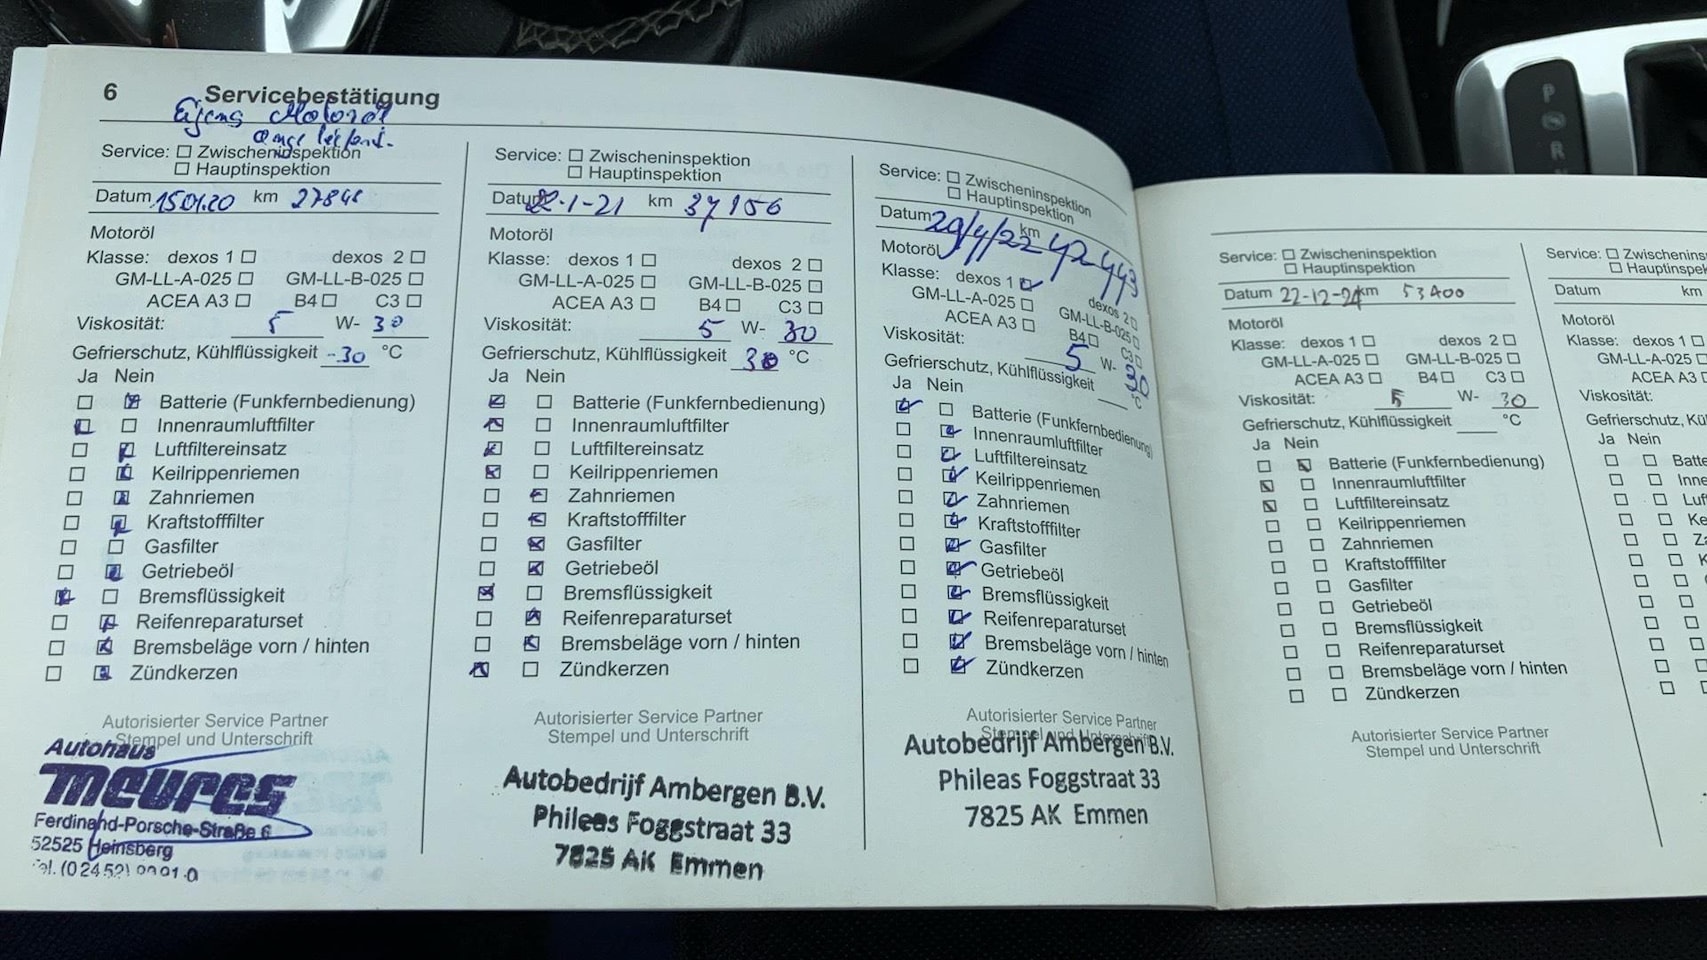 6 Servicebestätigung
Eigens Motoröl
angeliefert.
Service: Zwischeninspektion
Hauptinspektion
Datum 15.01.20 km 27848
Motoröl
Klasse: dexos 1 dexos 2
GM-LL-A-025 GM-LL-B-025
ACEA A3 B4 C3
Viskosität: 5 W- 30
Gefrierschutz, Kühlflüssigkeit -30 °C
Ja Nein
Batterie (Funkfernbedienung)
Innenraumluftfilter
Luftfiltereinsatz
Keilrippenriemen
Zahnriemen
Kraftstofffilter
Gasfilter
Getriebeöl
Bremsflüssigkeit
Reifenreparaturset
Bremsbeläge vorn / hinten
Zündkerzen
Autorisierter Service Partner
Stempel und Unterschrift
Autohaus
MEURES
Ferdinand-Porsche-Straße 6
52525 Heinsberg
Tel. (0 24 52)
Service: Zwischeninspektion
Hauptinspektion
Datum 22-1-21 km 37156
Motoröl
Klasse: dexos 1 dexos 2
GM-LL-A-025 GM-LL-B-025
ACEA A3 B4 C3
Viskosität: 5 W- 30
Gefrierschutz, Kühlflüssigkeit 30 °C
Ja Nein
Batterie (Funkfernbedienung)
Innenraumluftfilter
Luftfiltereinsatz
Keilrippenriemen
Zahnriemen
Kraftstofffilter
Gasfilter
Getriebeöl
Bremsflüssigkeit
Reifenreparaturset
Bremsbeläge vorn / hinten
Zündkerzen
Autorisierter Service Partner
Stempel und Unterschrift
Autobedrijf Ambergen B.V.
Phileas Foggstraat 33
7825 AK Emmen
Service: Zwischeninspektion
Hauptinspektion
Datum 29/4/22 km 42443
Motoröl
Klasse: dexos 1 dexos 2
GM-LL-A-025 GM-LL-B-025
ACEA A3 B4 C3
Viskosität: 5 W- 30
Gefrierschutz, Kühlflüssigkeit °C
Ja Nein
Batterie (Funkfernbedienung)
Innenraumluftfilter
Luftfiltereinsatz
Keilrippenriemen
Zahnriemen
Kraftstofffilter
Gasfilter
Getriebeöl
Bremsflüssigkeit
Reifenreparaturset
Bremsbeläge vorn / hinten
Zündkerzen
Autorisierter Service Partner
Stempel und Unterschrift
Autobedrijf Ambergen B.V.
Phileas Foggstraat 33
7825 AK Emmen
Service: Zwischeninspektion
Hauptinspektion
Datum 22-12-24 km 53400
Motoröl
Klasse: dexos 1 dexos 2
GM-LL-A-025 GM-LL-B-025
ACEA A3 B4 C3
Viskosität: 5 W- 30
Gefrierschutz, Kühlflüssigkeit °C
Ja Nein
Batterie (Funkfernbedienung)
Innenraumluftfilter
Luftfiltereinsatz
Keilrippenriemen
Zahnriemen
Kraftstofffilter
Gasfilter
Getriebeöl
Bremsflüssigkeit
Reifenreparaturset
Bremsbeläge vorn / hinten
Zündkerzen
Autorisierter Service Partner
Stempel und Unterschrift
Service: Zwischenins
Hauptinspek
Datum km
Motoröl
Klasse: dexos 1
GM-LL-A-025
ACEA A3
Viskosität:
Gefrierschutz, Kü
Ja Nein
Batte
Inne
Luf
Ke
Za
K
P
R
N